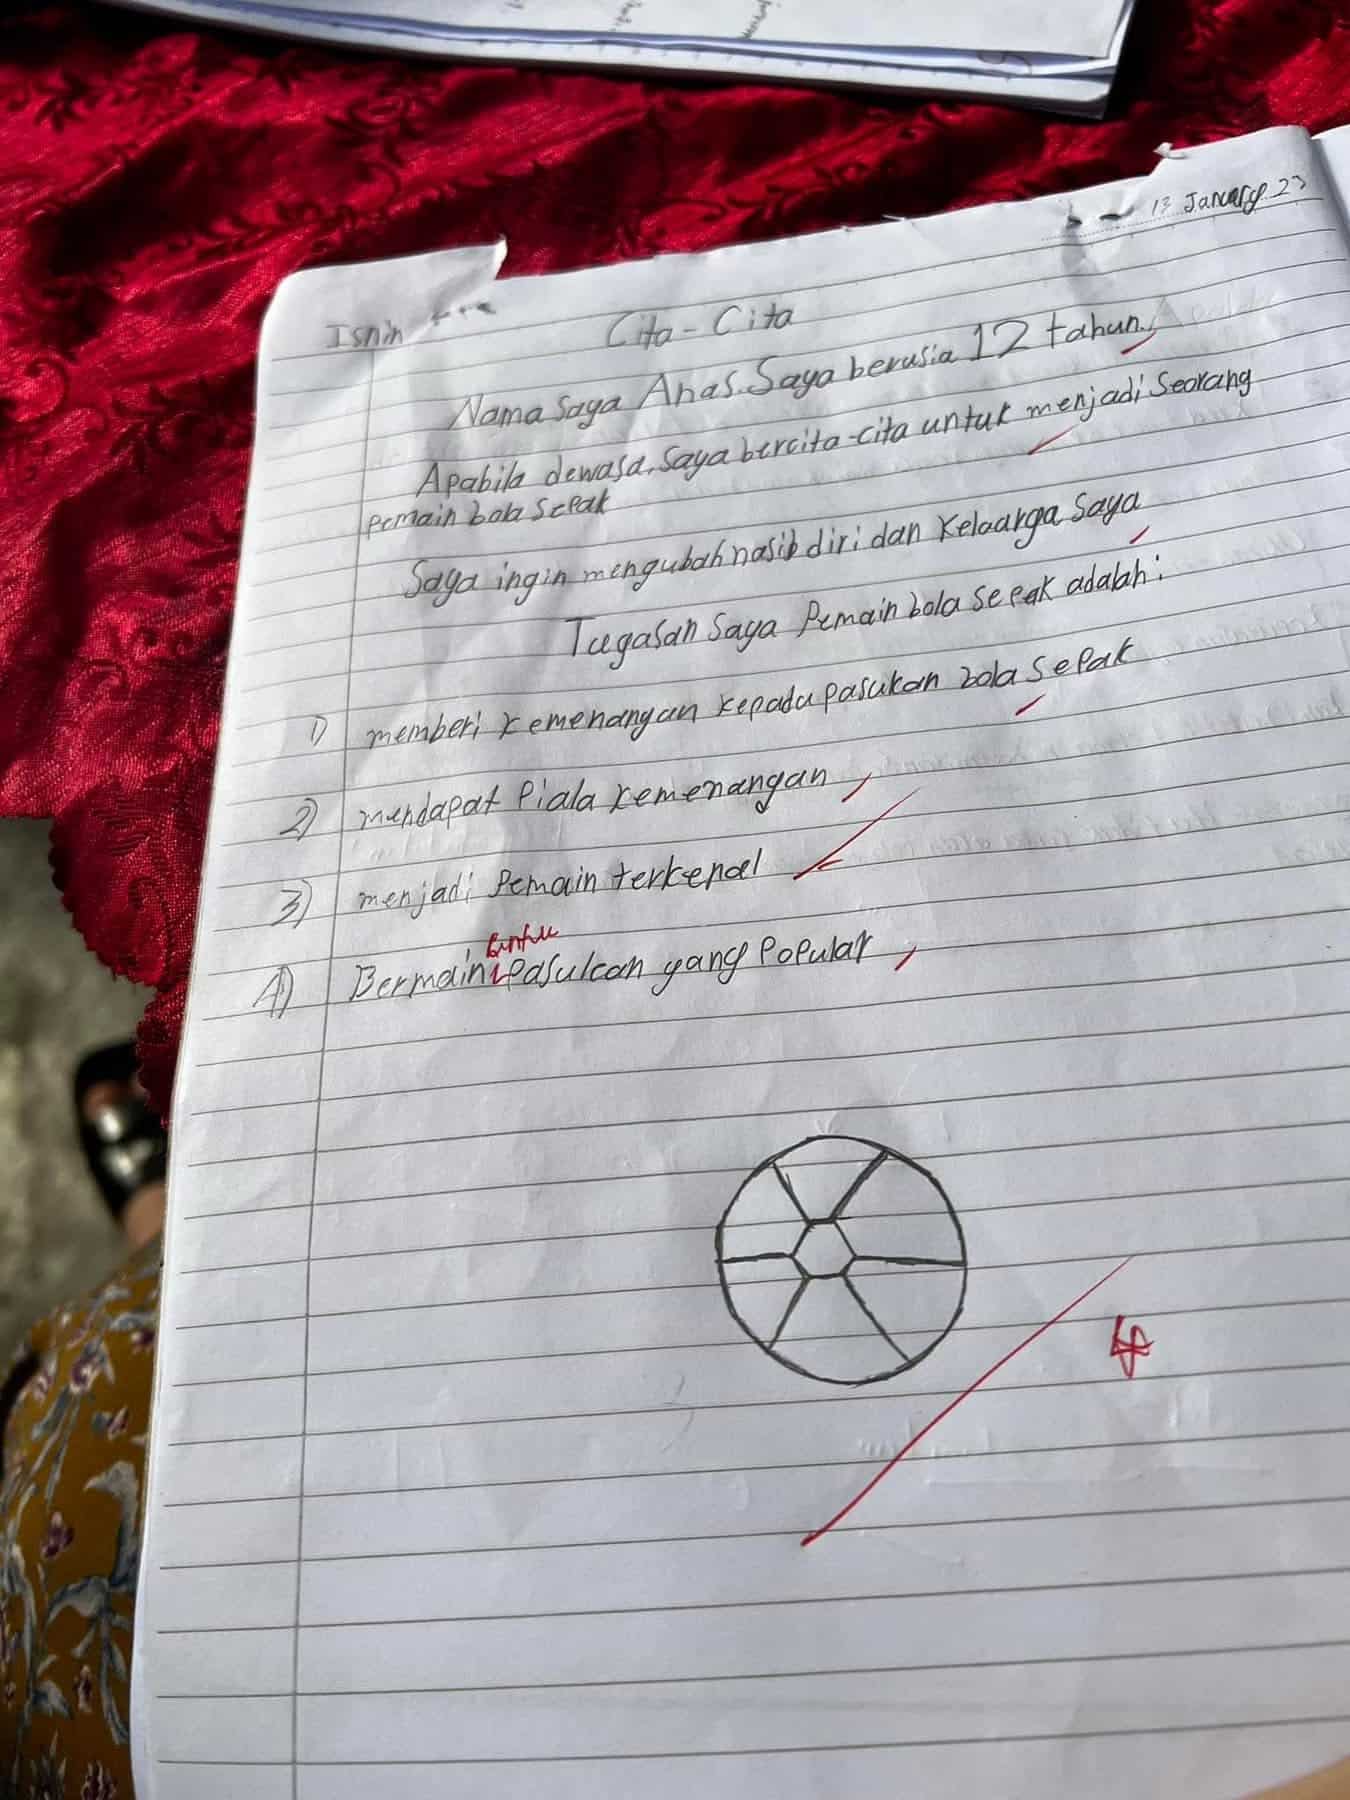 Isnin
13 January 23
Cita-Cita
Nama saya Anas. Saya berusia 12 tahun.
Apabila dewasa, saya bercita-cita untuk menjadi seorang
pemain bola sepak
Saya ingin mengubah nasib diri dan keluarga saya
Tugasan saya Pemain bola sepak adalah:
1) memberi kemenangan kepada pasukan bola sepak
2) mendapat Piala kemenangan
3) menjadi Pemain terkenal
untuk
4) Bermain pasukan yang Popular